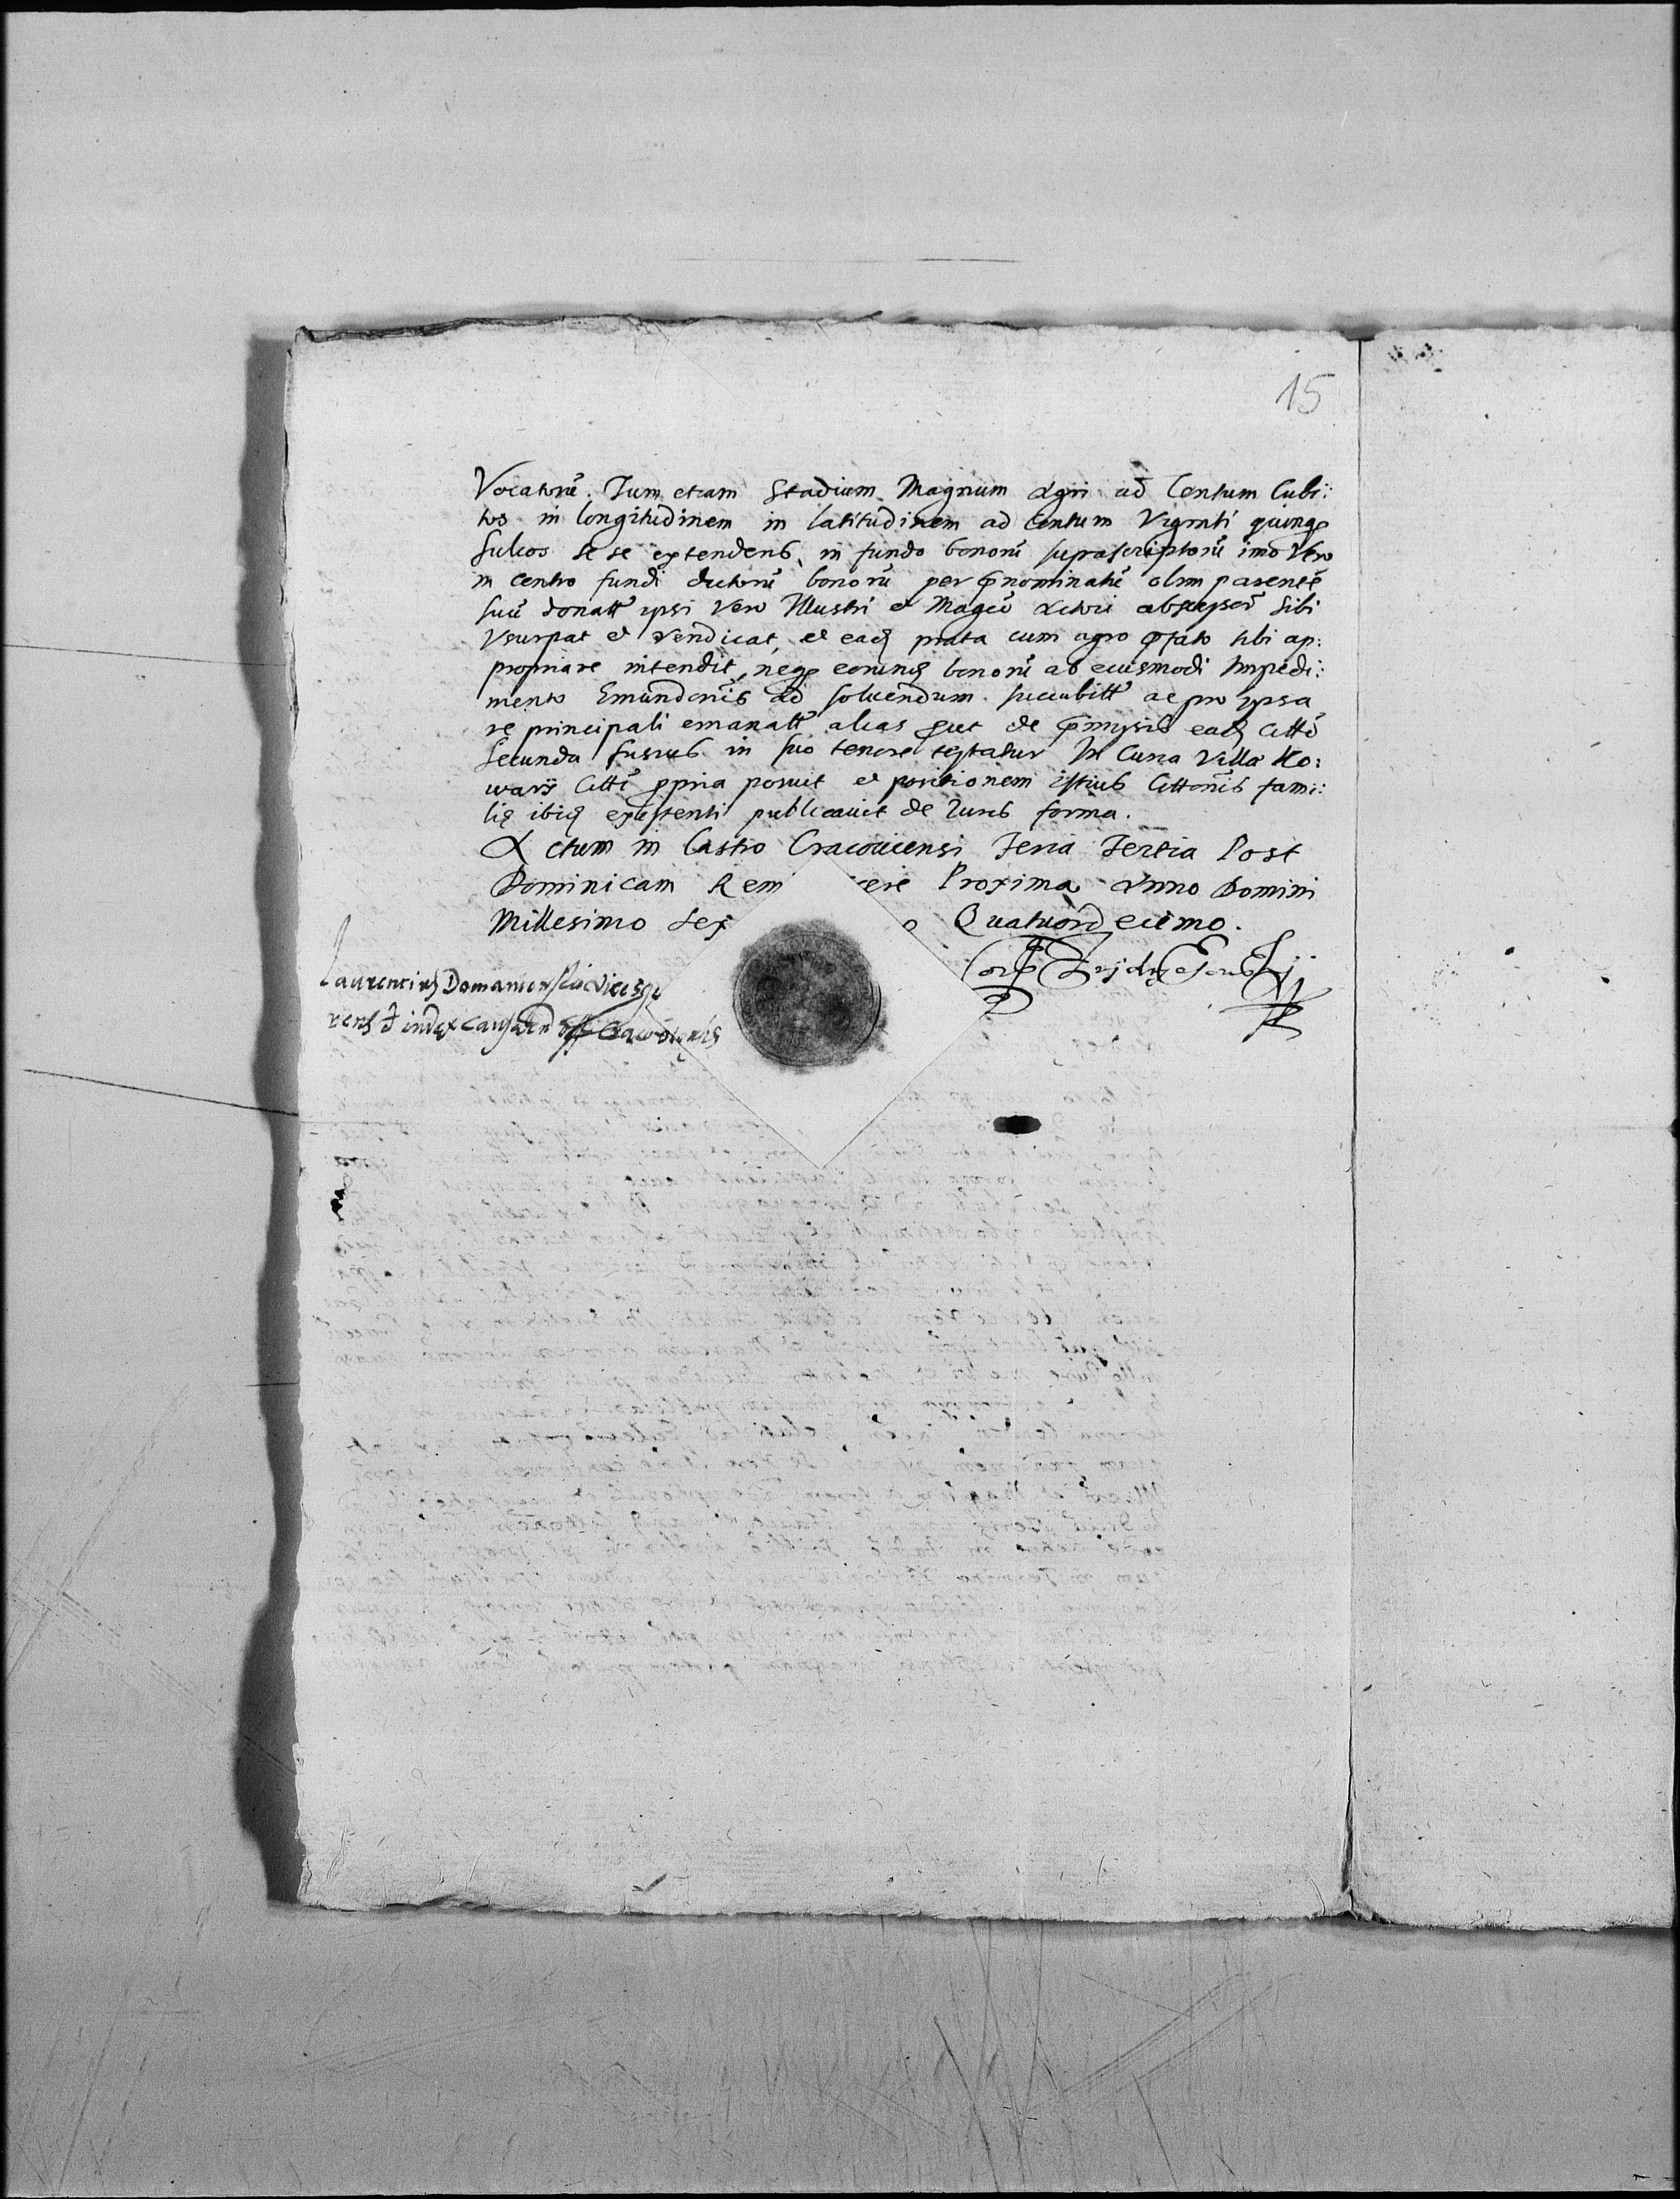 15
Vocatorū. Tum etiam Stadium Magnum Agri ad Centum Cubi:
tos in longitudinem in latitudinem ad Centum Viginti quinq̨
Sulcos se se extendens, in fundo bonorū suprascriptorū imo Vero
in centro fundi dictorū bonorū per p̄nominatū olim parentē
suū donatt ipsi Vero Illustri et Magco Actori Sibi
Vsurpat et Vendicat, et eadȝ prata cum agro p̄fato sibi ap:
propriare intendit, neq̨ eorundȝ bonorū ab eiusmodi Impedi:
mento ad soluendum. succubitt ac pro ipsa
re principali emanatt alias put de p̄myssis eadȝ Citto
Secunda fusius in suo tenore testatur In Curia Villa Ko:
wary Citti ppria posuit et positionem istius Cittonis fami:
lię ibidȝ existenti publicauit de Iuris forma.
Actum in Castro Cracouiensi Feria Tertia Post
Dominicam Rem cere Proxima Anno Domini
Millesimo Sex o Quatuordecimo.
Laurencius Domaniewski Vicesge
rens & index causarū off Cracouiensis